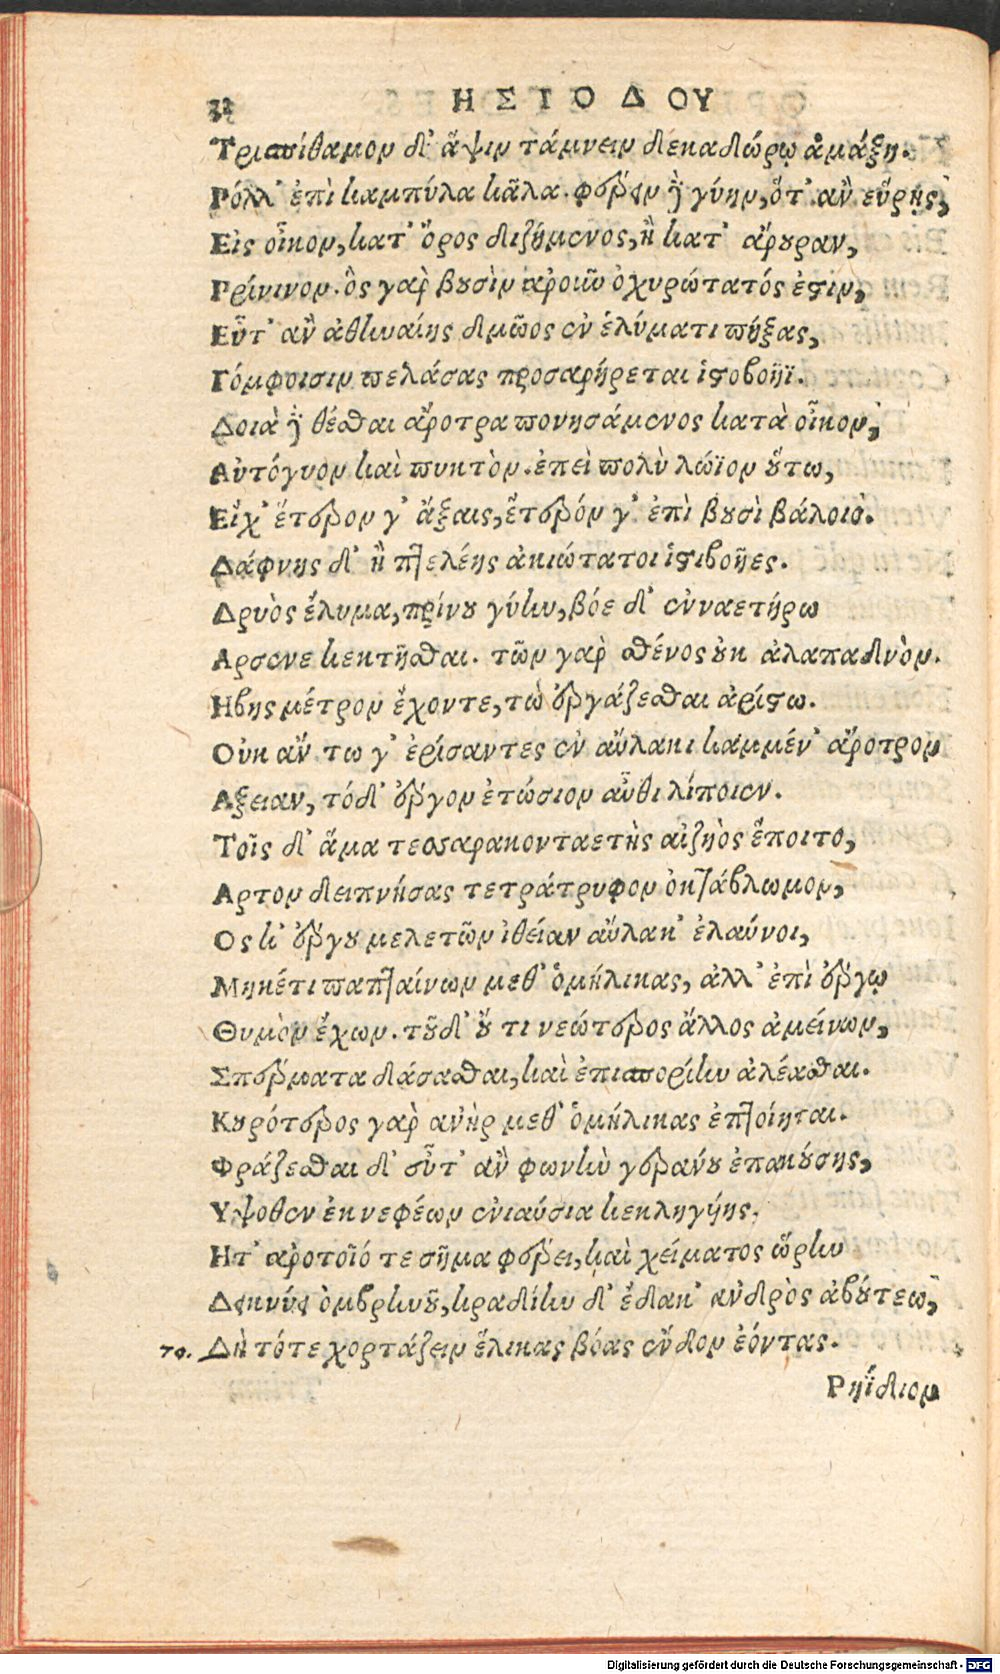 32 ΗΣΙΟΔΟΥ
Τρισπίθαμον δ' ἅψιν τάμνειν δεκαδώρῳ ἁμάξῃ.
Πόλλ' ἐπὶ καμπύλα κᾶλα. φέρειν δὲ γύην, ὅτ' ἂν εὕρῃς,
Εἰς οἶκον, κατ' ὄρος διζήμενος, ἢ κατ' ἄρουραν,
Πρίνινον. ὃς γὰρ βουσὶν ἀροιῦ ὀχυρώτατός ἐστιν,
Εὖτ' ἂν ἀθηναίης δμῶος ἐν ἐλύματι πήξας,
Γόμφοισιν πελάσας προσαρήρεται ἱστοβοῆϊ.
Δοιὰ δὲ θέσθαι ἄροτρα πονησάμενος κατὰ οἶκον,
Αὐτόγυον καὶ πυκτὸν. ἐπεὶ πολὺ λώϊον οὕτω,
Εἴχ' ἕτερον γ' ἄξαις, ἕτερόν γ' ἐπὶ βουσὶ βάλοιο.
Δάφνης δ' ἢ πτελέης ἀκιώτατοι ἱστοβοῆες.
Δρυὸς ἔλυμα, πρίνου γύην, βόε δ' ἐνναετήρω
Αρσενε κεκτῆσθαι. τῶν γὰρ σθένος οὐκ ἀλαπαδνὸν.
Ηβης μέτρον ἔχοντε, τὼ ἐργάζεσθαι ἀρίστω.
Οὐκ ἄν τω γ' ἐρίσαντες ἐν αὔλακι καμμέν' ἄροτρον
Αξειαν, τόδ' ἔργον ἐτώσιον αὖθι λίποιεν.
Τοῖς δ' ἅμα τεσσαρακονταετὴς αἰζηὸς ἕποιτο,
Αρτον δειπνήσας τετράτρυφον ὀκτάβλωμον,
Ος κ' ἔργου μελετῶν ἰθείαν αὔλακ' ἐλαύνοι,
Μηκέτι παπταίνων μεθ' ὁμήλικας, ἀλλ' ἐπὶ ἔργῳ
Θυμὸν ἔχων. τοῦδ' οὔ τι νεώτερος ἄλλος ἀμείνων,
Σπέρματα δάσασθαι, καὶ ἐπισπορίην ἀλέασθαι.
Κουρότερος γὰρ ἀνὴρ μεθ' ὁμήλικας ἐπτοίηται.
Φράζεσθαι δ' εὖτ' ἂν φωνὴν γεράνου ἐπακούσης,
Υψοθεν ἐκ νεφέων ἐνιαύσια κεκληγύης.
Ητ' ἀροτοῖό τε σῆμα φέρει, καὶ χείματος ὥρην
Δεικνύει ὀμβρηνοῦ, κραδίην δ' ἔδακ' ἀνδρὸς ἀβούτεω,
70. Δὴ τότε χορτάζειν ἕλικας βόας ἔνδον ἐόντας.
Ρηΐδιον
Digitalisierung gefördert durch die Deutsche Forschungsgemeinschaft - DFG